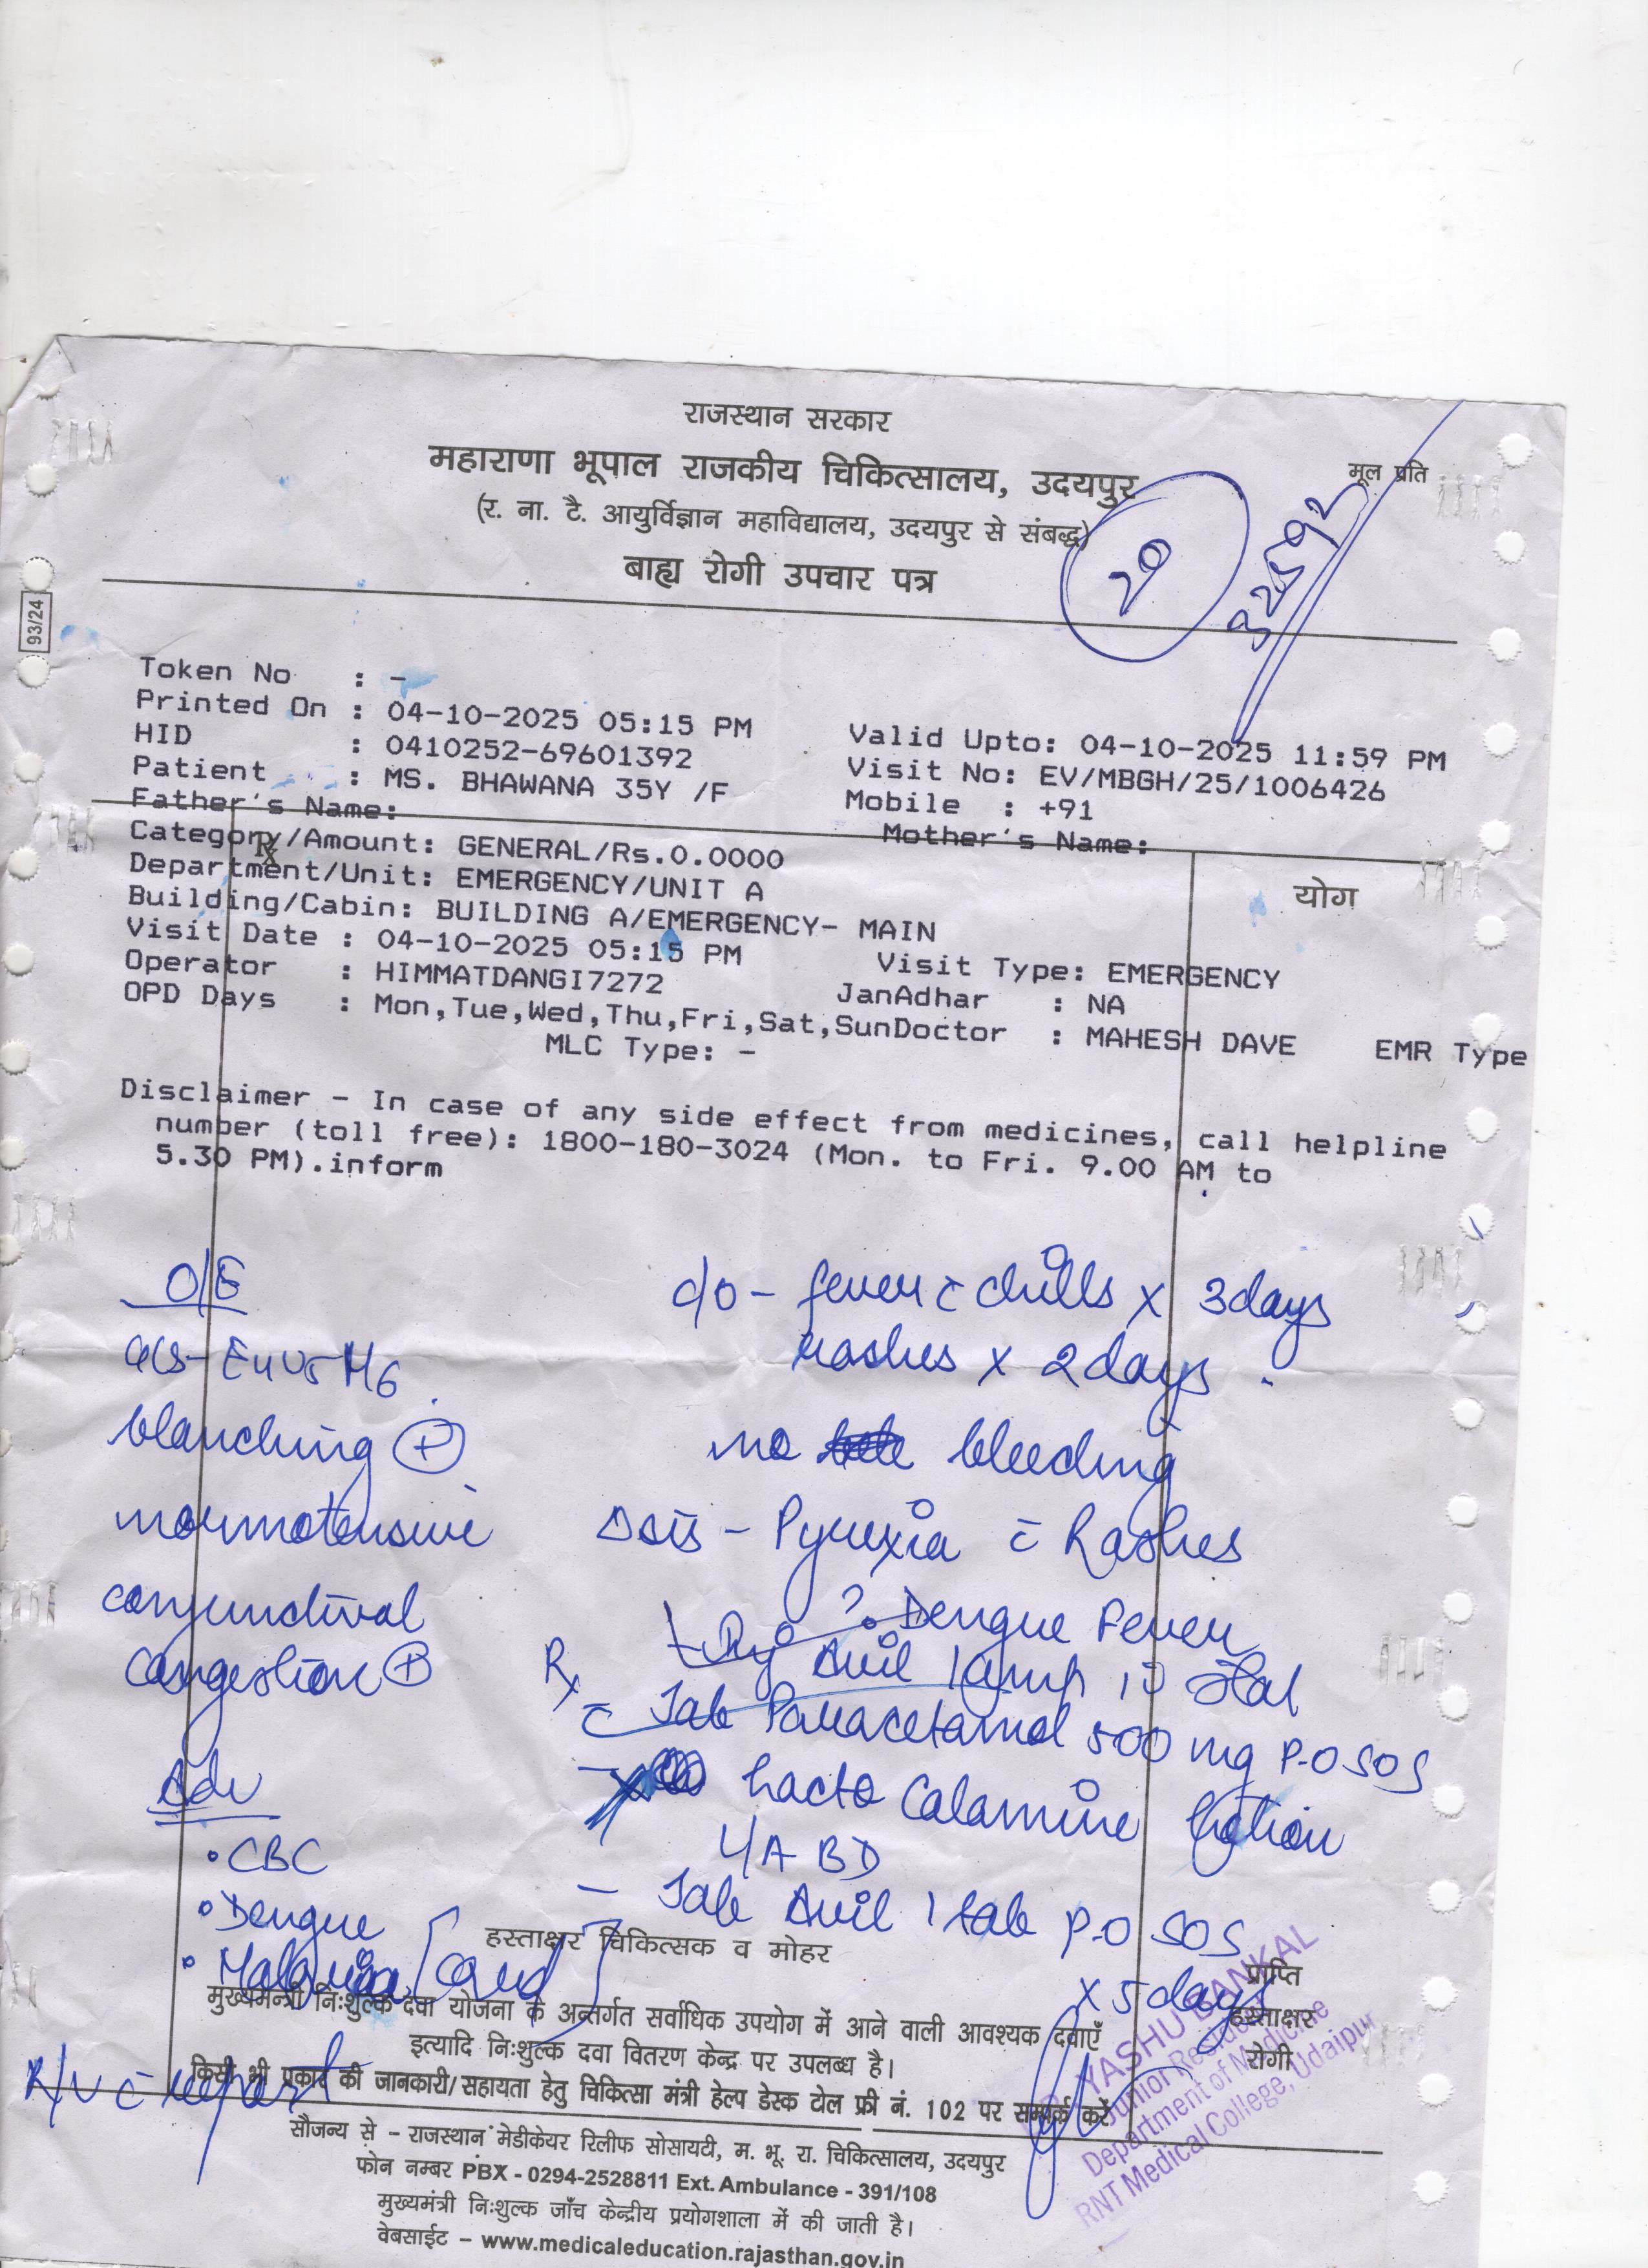 राजस्थान सरकार
महाराणा भूपाल राजकीय चिकित्सालय, उदयपुर
मूल प्रति
(र. ना. टै. आयुर्विज्ञान महाविद्यालय, उदयपुर से संबद्ध)
बाह्य रोगी उपचार पत्र
93/24
Token No : -
Printed On : 04-10-2025 05:15 PM Valid Upto: 04-10-2025 11:59 PM
HID : 0410252-69601392 Visit No: EV/MBGH/25/1006426
Patient : MS. BHAWANA 35Y /F Mobile : +91
Father's Name: Mother's Name:
Category/Amount: GENERAL/Rs.0.0000
Rx
योग
Department/Unit: EMERGENCY/UNIT A
Building/Cabin: BUILDING A/EMERGENCY- MAIN
Visit Date : 04-10-2025 05:15 PM Visit Type: EMERGENCY
Operator : HIMMATDANGI7272 JanAdhar : NA
OPD Days : Mon,Tue,Wed,Thu,Fri,Sat,SunDoctor : MAHESH DAVE EMR Type
MLC Type: -
Disclaimer - In case of any side effect from medicines, call helpline
number (toll free): 1800-180-3024 (Mon. to Fri. 9.00 AM to
5.30 PM).inform
O/E
c/o - fever c̄ chills x 3days
GCS- E4V5M6
rashes x 2days
blanching (+)
no bleeding
normotensive
Dsis - Pyrexia c̄ Rashes
conjunctival
? Dengue Fever
congestion (+)
Rx
Avil 1amp
Stat
Tab Paracetamol 500 mg P.O SOS
Adv
Lacto Calamine Lotion
L/A BD
• CBC
- Tab Avil 1 tab P.O SOS
• Dengue
हस्ताक्षर चिकित्सक व मोहर
• Malaria [Card]
x 5days
प्राप्ति
हस्ताक्षर
रोगी
मुख्यमन्त्री निःशुल्क दवा योजना के अन्तर्गत सर्वाधिक उपयोग में आने वाली आवश्यक दवाएँ
इत्यादि निःशुल्क दवा वितरण केन्द्र पर उपलब्ध है।
R/v c̄ report
किसी भी प्रकार की जानकारी/सहायता हेतु चिकित्सा मंत्री हेल्प डेस्क टोल फ्री नं. 102 पर सम्पर्क करें
YASHU BANKAL
Junior Resident
Department of Medicine
RNT Medical College, Udaipur
सौजन्य से - राजस्थान मेडीकेयर रिलीफ सोसायटी, म. भू. रा. चिकित्सालय, उदयपुर
फोन नम्बर PBX - 0294-2528811 Ext. Ambulance - 391/108
मुख्यमंत्री निःशुल्क जाँच केन्द्रीय प्रयोगशाला में की जाती है।
वेबसाईट - www.medicaleducation.rajasthan.gov.in